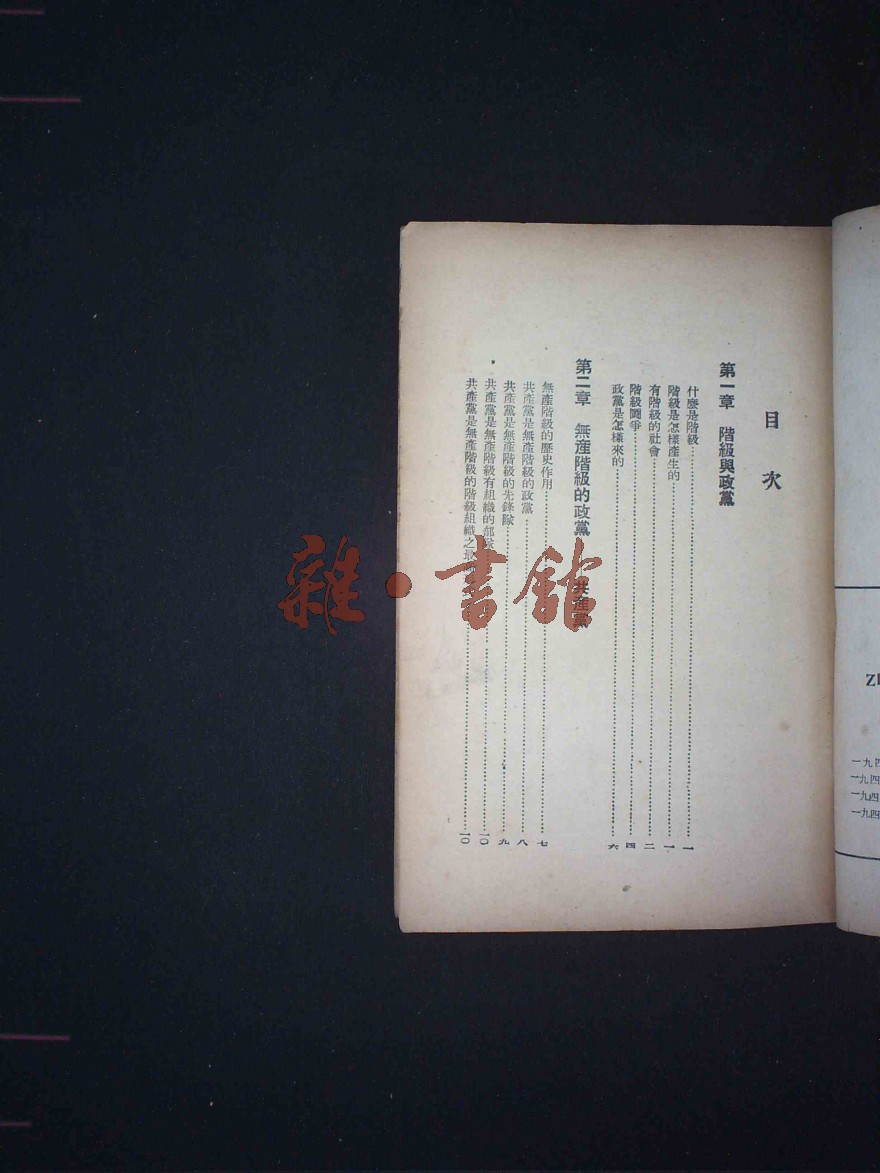 目 次
第一章 階級與政黨
什麼是階級……一
階級是怎樣產生的……一
有階級的社會……二
階級鬬爭……四
政黨是怎樣來的……六
第二章 無產階級的政黨 共產黨
無產階級的歷史作用……七
共產黨是無產階級的政黨……八
共產黨是無產階級的先鋒隊……九
共產黨是無產階級有組織的部隊……一〇
共產黨是無產階級的階級組織之最……一〇
雜·書館
一九四
一九四
一九四
一九四